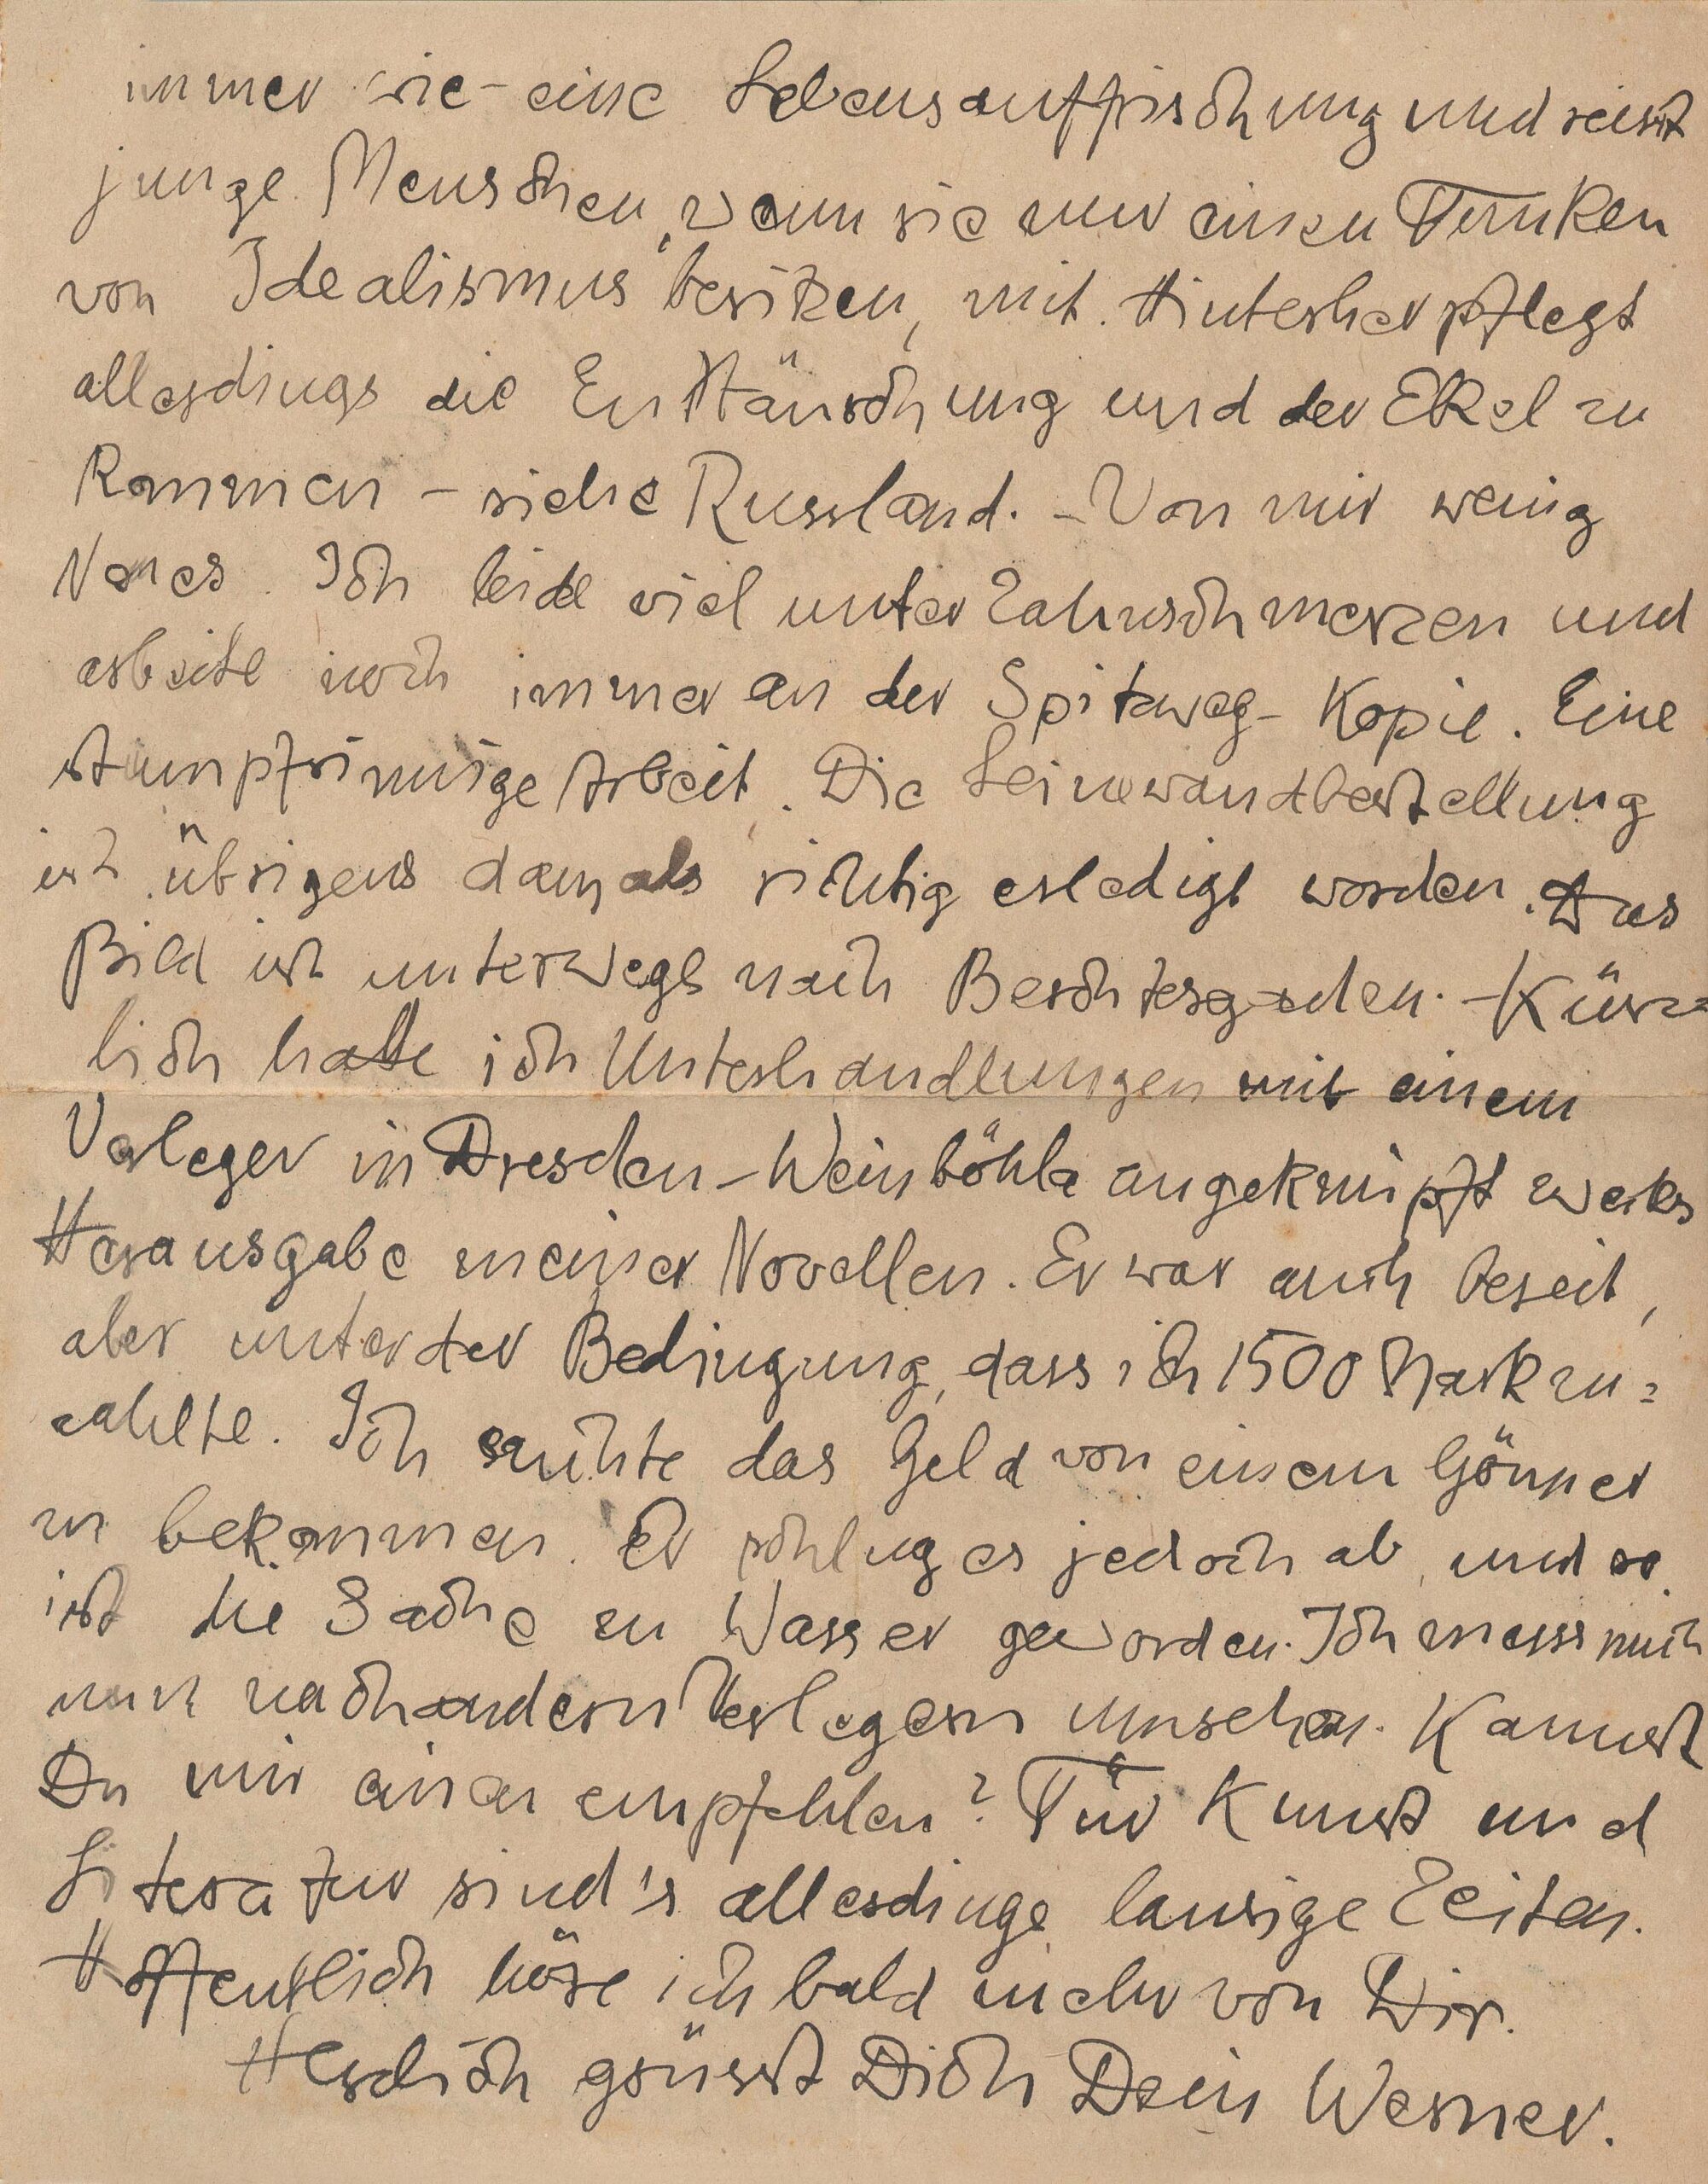 immer wie eine Lebensauffrischung und reisst
junge Menschen, wenn sie nur einen Funken
von Idealismus besitzen, mit. Hinterher pflegt
allerdings die Enttäuschung und der Ekel zu
kommen – siehe Russland. – Von mir wenig
Neues. Ich leide viel unter Zahnschmerzen und
arbeite noch immer an der Spitzweg-Kopie. Eine
stumpfsinnige Arbeit. Die Leinewandbestellung
ist übrigens damals richtig erledigt worden. Das
Bild ist unterwegs nach Berchtesgaden. – Kürz=
lich hatte ich Unterhandlungen mit einem
Verleger in Dresden-Weinböhla angeknüpft zwecks
Herausgabe meiner Novellen. Er war auch bereit,
aber unter der Bedingung, dass ich 1500 Mark zu=
zahlte. Ich suchte das Geld von einem Gönner
zu bekommen. Er schlug es jedoch ab, und so
ist die Sache zu Wasser geworden. Ich muss mich
nun nach andern Verlegern umsehen. Kannst
Du mir einen empfehlen? Für Kunst und
Literatur sind's allerdings lausige Zeiten.
Hoffentlich höre ich bald mehr von Dir.
Herzlich grüsst Dich Dein Werner.